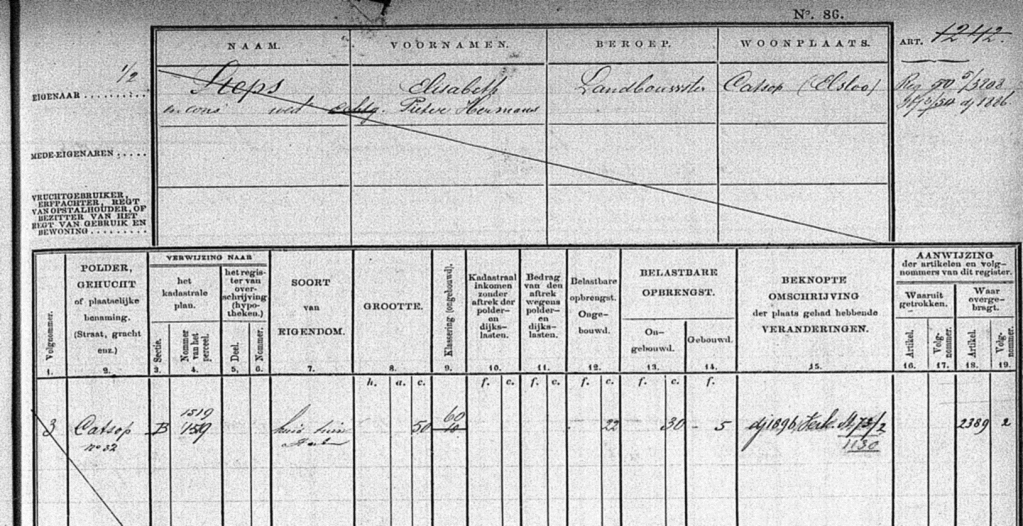 No. 86.
NAAM. VOORNAMEN. BEROEP. WOONPLAATS. ART. 1242.
1/2
EIGENAAR Steps Elisabeth Landbouwster Catsop (Elsloo)
en cons wed echtg. Pieter Hermans dj 1886
MEDE-EIGENAREN
VRUCHTGEBRUIKER,
ERFPACHTER, REGT
VAN OPSTALHOUDER, OF
BEZITTER VAN HET
REGT VAN GEBRUIK EN
BEWONING
Volgnommer.
POLDER,
GEHUCHT
of plaatselijke
benaming.
(Straat, gracht
enz.)
VERWIJZING NAAR
het
kadastrale
plan.
Sectie.
Nommer
van het
perceel.
het regis-
ter van
over-
schrijving
(hypo-
theken.)
Deel.
Nommer.
SOORT
van
EIGENDOM.
GROOTTE.
Klassering (ongebouwd).
Kadastraal
inkomen
zonder
aftrek der
polder-
en
dijks-
lasten.
Bedrag
van den
aftrek
wegens
polder-
en
dijks-
lasten.
Belastbare
opbrengst.
Onge-
bouwd.
BELASTBARE
OPBRENGST.
On-
gebouwd.
Gebouwd.
BEKNOPTE
OMSCHRIJVING
der plaats gehad hebbende
VERANDERINGEN.
AANWIJZING
der artikelen en volg-
nommers van dit register.
Waaruit
getrokken.
Artikel.
Volg-
nommer.
Waar
overge-
bragt.
Artikel.
Volg-
nommer.
1. 2. 3. 4. 5. 6. 7. 8. 9. 10. 11. 12. 13. 14. 15. 16. 17. 18. 19.
h. a. c. f. c. f. c. f. c. f. c. f.
1519 60
3 Catsop B 159 huis tuin 50 10 22 30 5 dj 1896 Verk 73/2 2389 2
no 32 1130